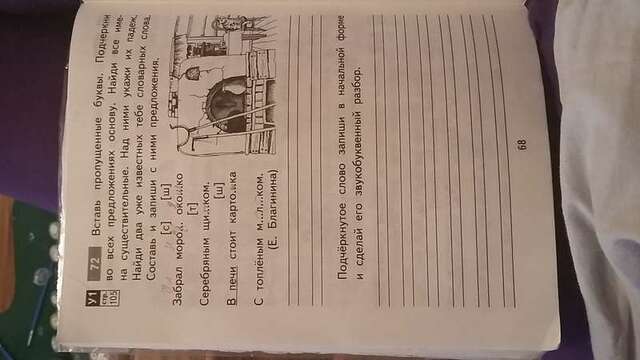 У1
стр. 105
72
Вставь пропущенные буквы. Подчеркни
во всех предложениях основу. Найди все име-
на существительные. Над ними укажи их падеж.
Найди два уже известных тебе словарных слова.
Составь и запиши с ними предложения.
[с] [ш]
Забрал моро... око...ко
[т]
Серебряным щи...ком.
[ш]
В печи стоит карто...ка
С топлёным м...л...ком.
(Е. Благинина)
Подчёркнутое слово запиши в начальной форме
и сделай его звукобуквенный разбор.
68